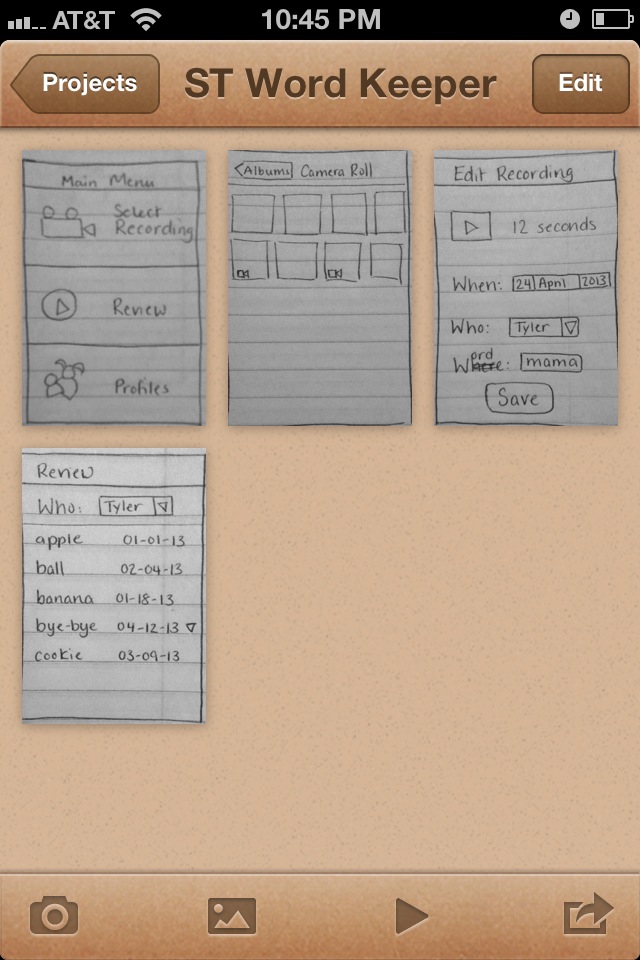 AT&T 10:45 PM
Projects ST Word Keeper Edit
Main Menu
Select
Recording
Review
Profiles
Albums Camera Roll
Edit Recording
12 seconds
When: 24 April 2013
Who: Tyler
Word: mama
Save
Review
Who: Tyler
apple 01-01-13
ball 02-04-13
banana 01-18-13
bye-bye 04-12-13
cookie 03-09-13